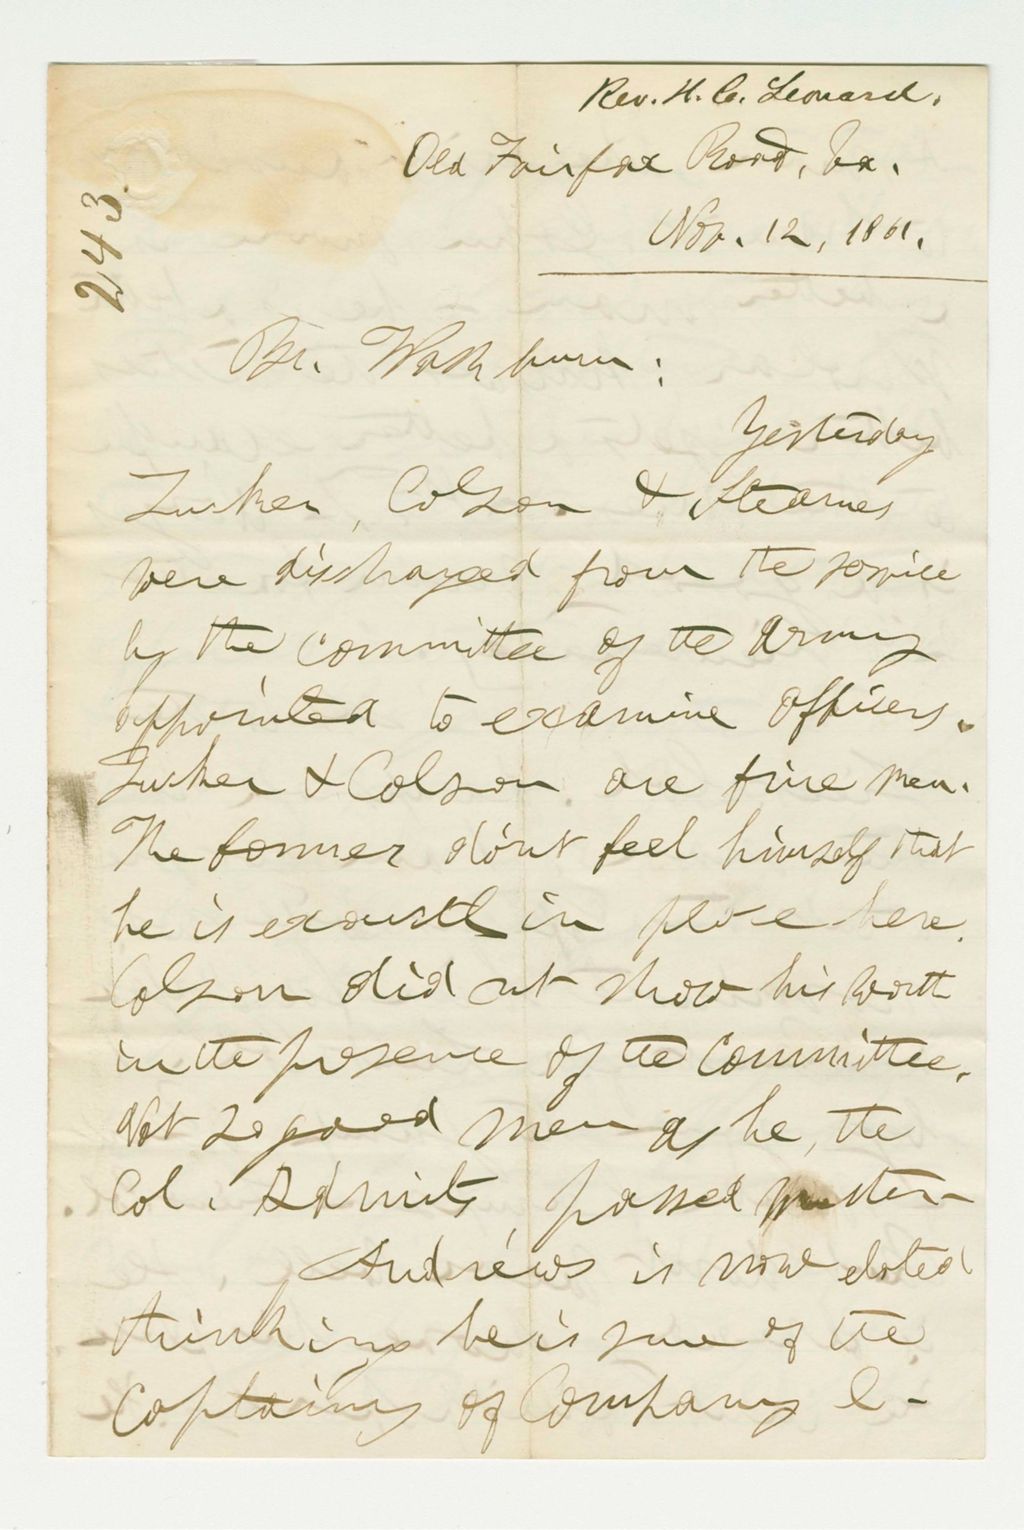 Rev. H. C. Leonard.
Old Fairfax Road, Va.
Nov. 12, 1861.
243
Br. Washburn:
Yesterday
Tucker, Colson & Stearnes
were discharged from the service
by the committee of the army
appointed to examine officers.
Tucker & Colson are fine men.
The former don't feel himself that
he is exactly in place here.
Colson did not show his worth
in the presence of the committee.
Not so good men as he, the
Col. admits, passed muster -
Andrews is now elated
thinking he is sure of the
Captaincy of Company C -